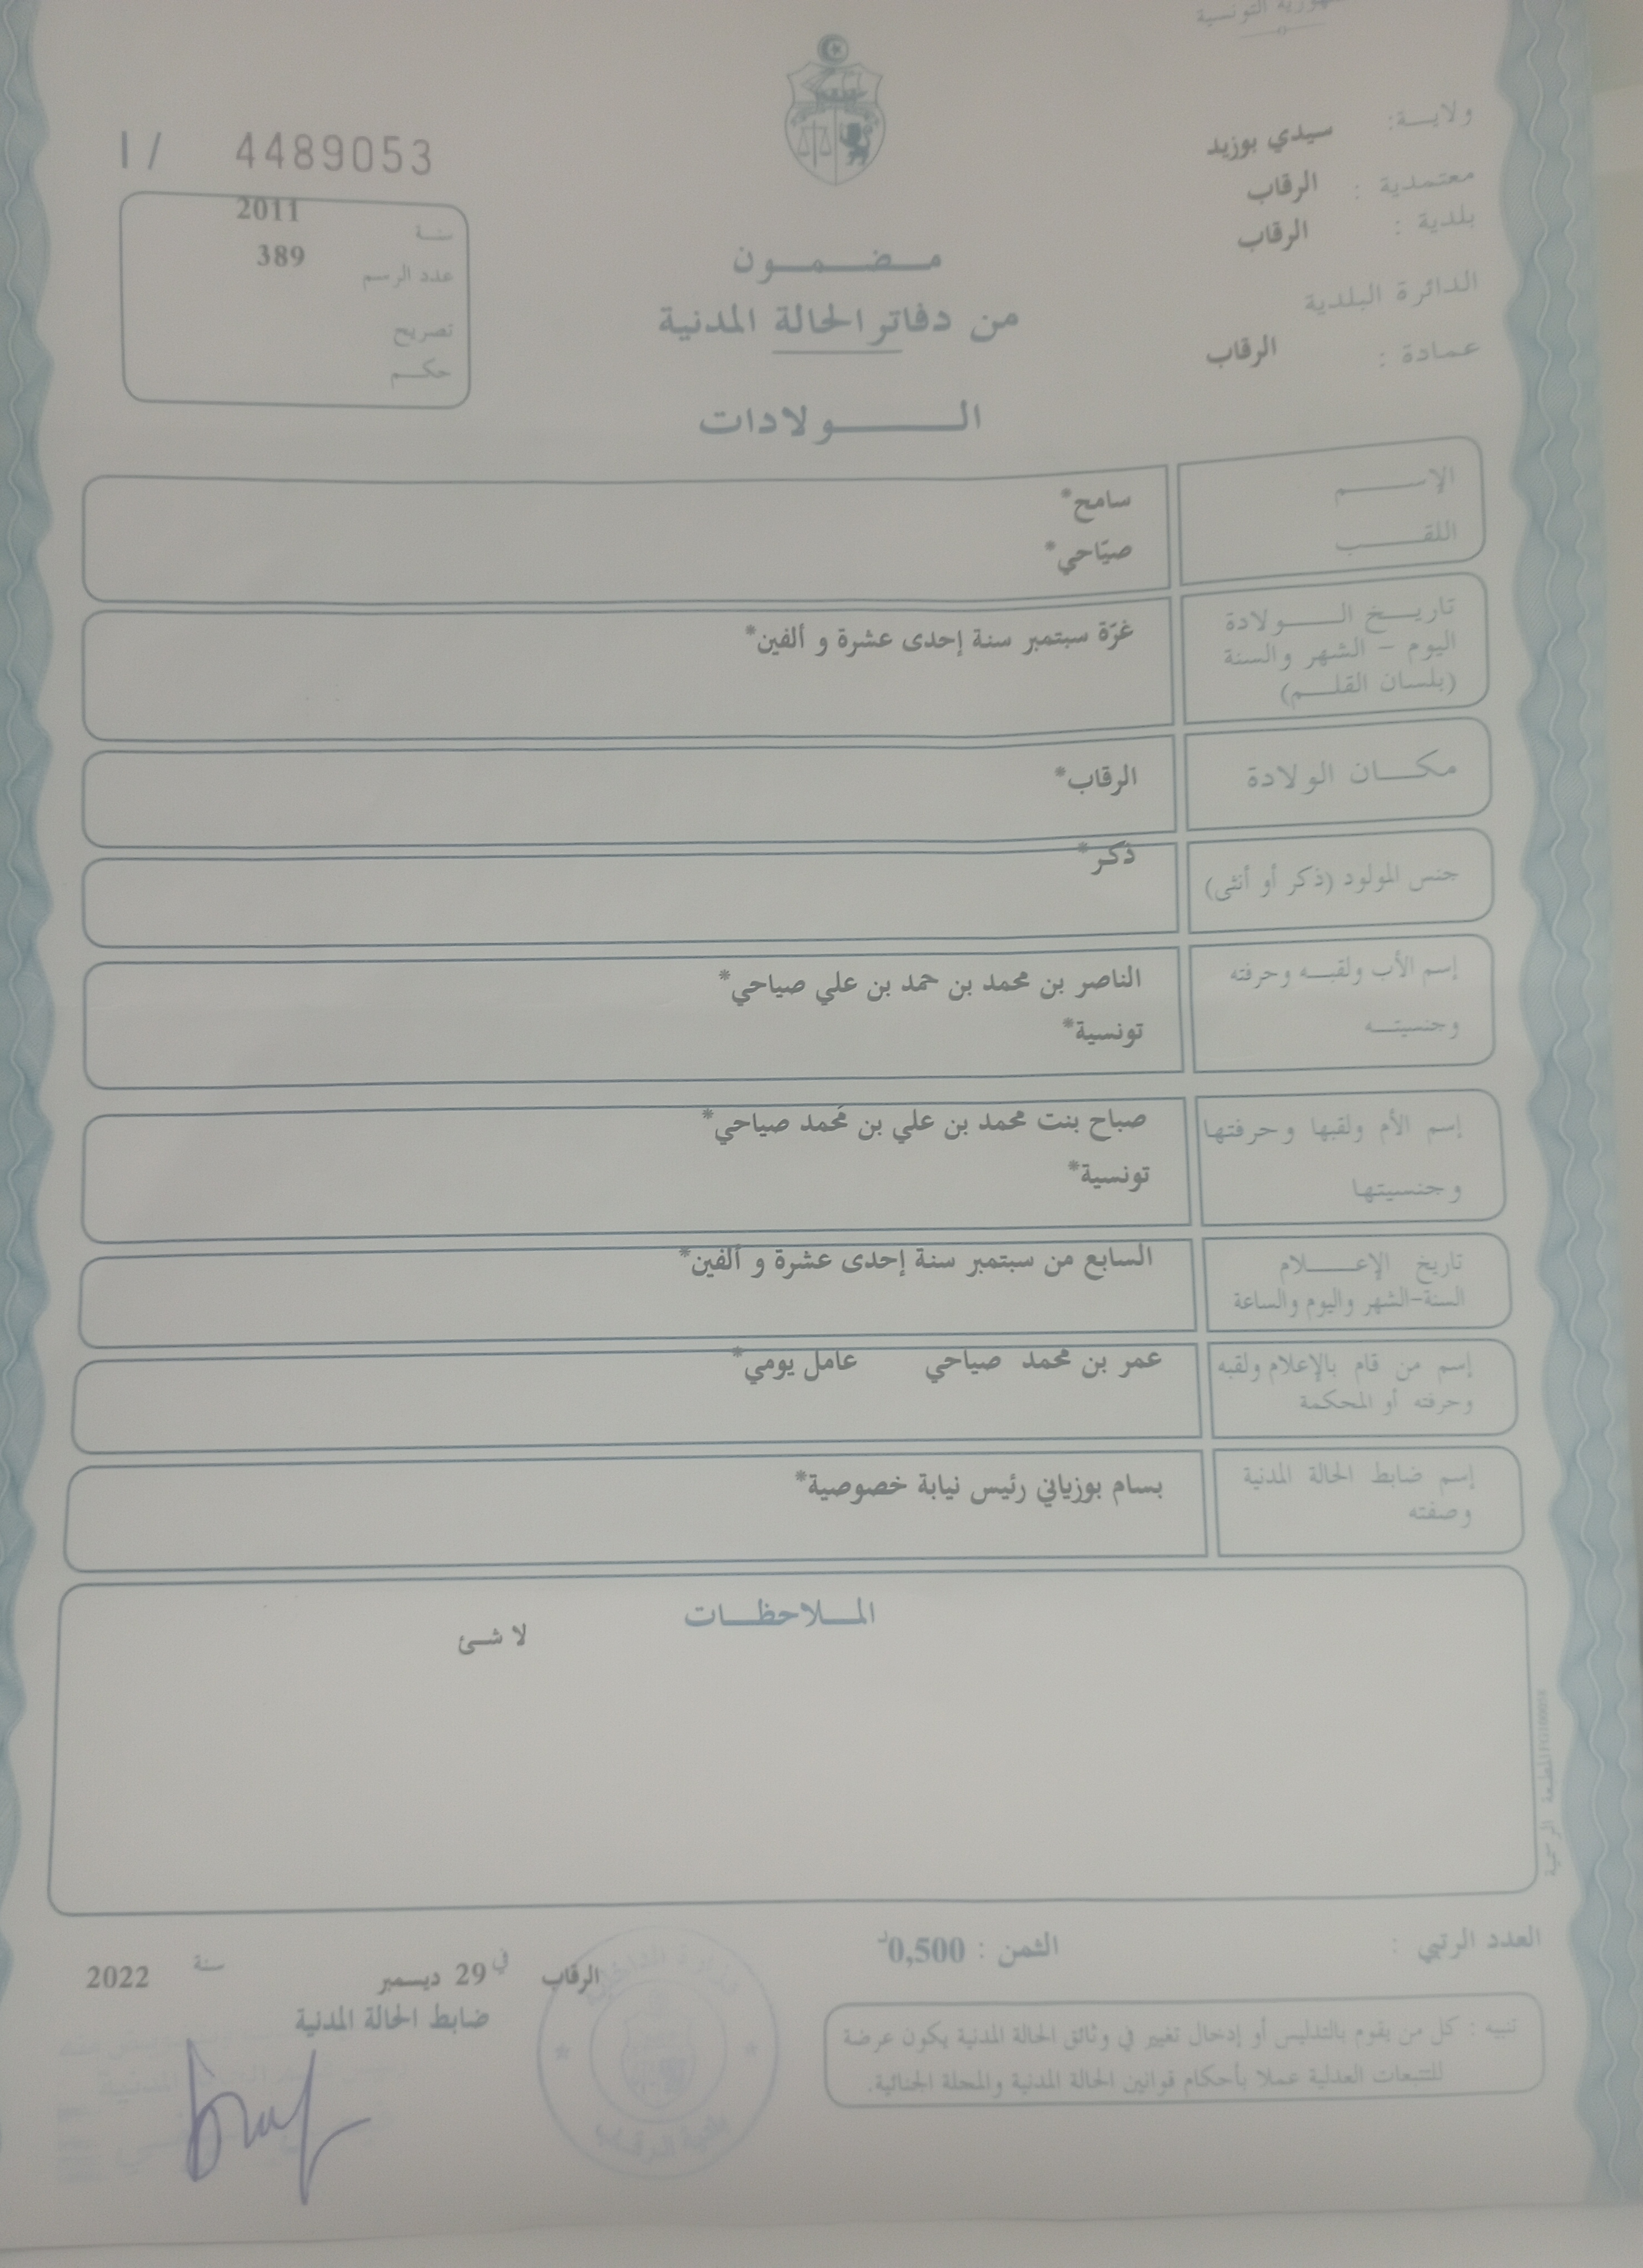 التونسية
ولايـــة: سيدي بوزيد
معتمدية : الرقاب
بلدية : الرقاب
الدائرة البلدية
عمادة : الرقاب
I / 4489053
سنـة 2011
عدد الرسم 389
تصريح
حكـــم
مـــضـــمـــون
من دفاتر الحالة المدنية
الــــــولادات
الإســــــم سامح*
اللقــــــب صيّاحي*
تاريـــخ الــــــولادة غرّة سبتمبر سنة إحدى عشرة و ألفين*
اليوم - الشهر والسنة
(بلسان القلـــم)
مكـــان الولادة الرقاب*
جنس المولود (ذكر أو أنثى) ذكر*
إسم الأب ولقبـــه وحرفته الناصر بن محمد بن حمد بن علي صياحي*
وجنسيتـــه تونسية*
إسم الأم ولقبها وحرفتها صباح بنت محمد بن علي بن مَحمد صياحي*
وجنسيتها تونسية*
تاريخ الإعــــــلام السابع من سبتمبر سنة إحدى عشرة و ألفين*
السنة-الشهر واليوم والساعة
إسم من قام بالإعلام ولقبه عمر بن محمد صياحي عامل يومي*
وحرفته أو المحكمة
إسم ضابط الحالة المدنية بسام بوزياني رئيس نيابة خصوصية*
وصفته
المـــلاحظـــات
لا شـئ
المطبعة الرسمية
العدد الرتبي :
الثمن : 0,500د
الرقاب في 29 ديسمبر سنة 2022
ضابط الحالة المدنية
تنبيه : كل من يقوم بالتدليس أو إدخال تغيير في وثائق الحالة المدنية يكون عرضة
للتتبعات العدلية عملا بأحكام قوانين الحالة المدنية والمجلة الجنائية.
وزارة الداخلية
بلدية الرقاب